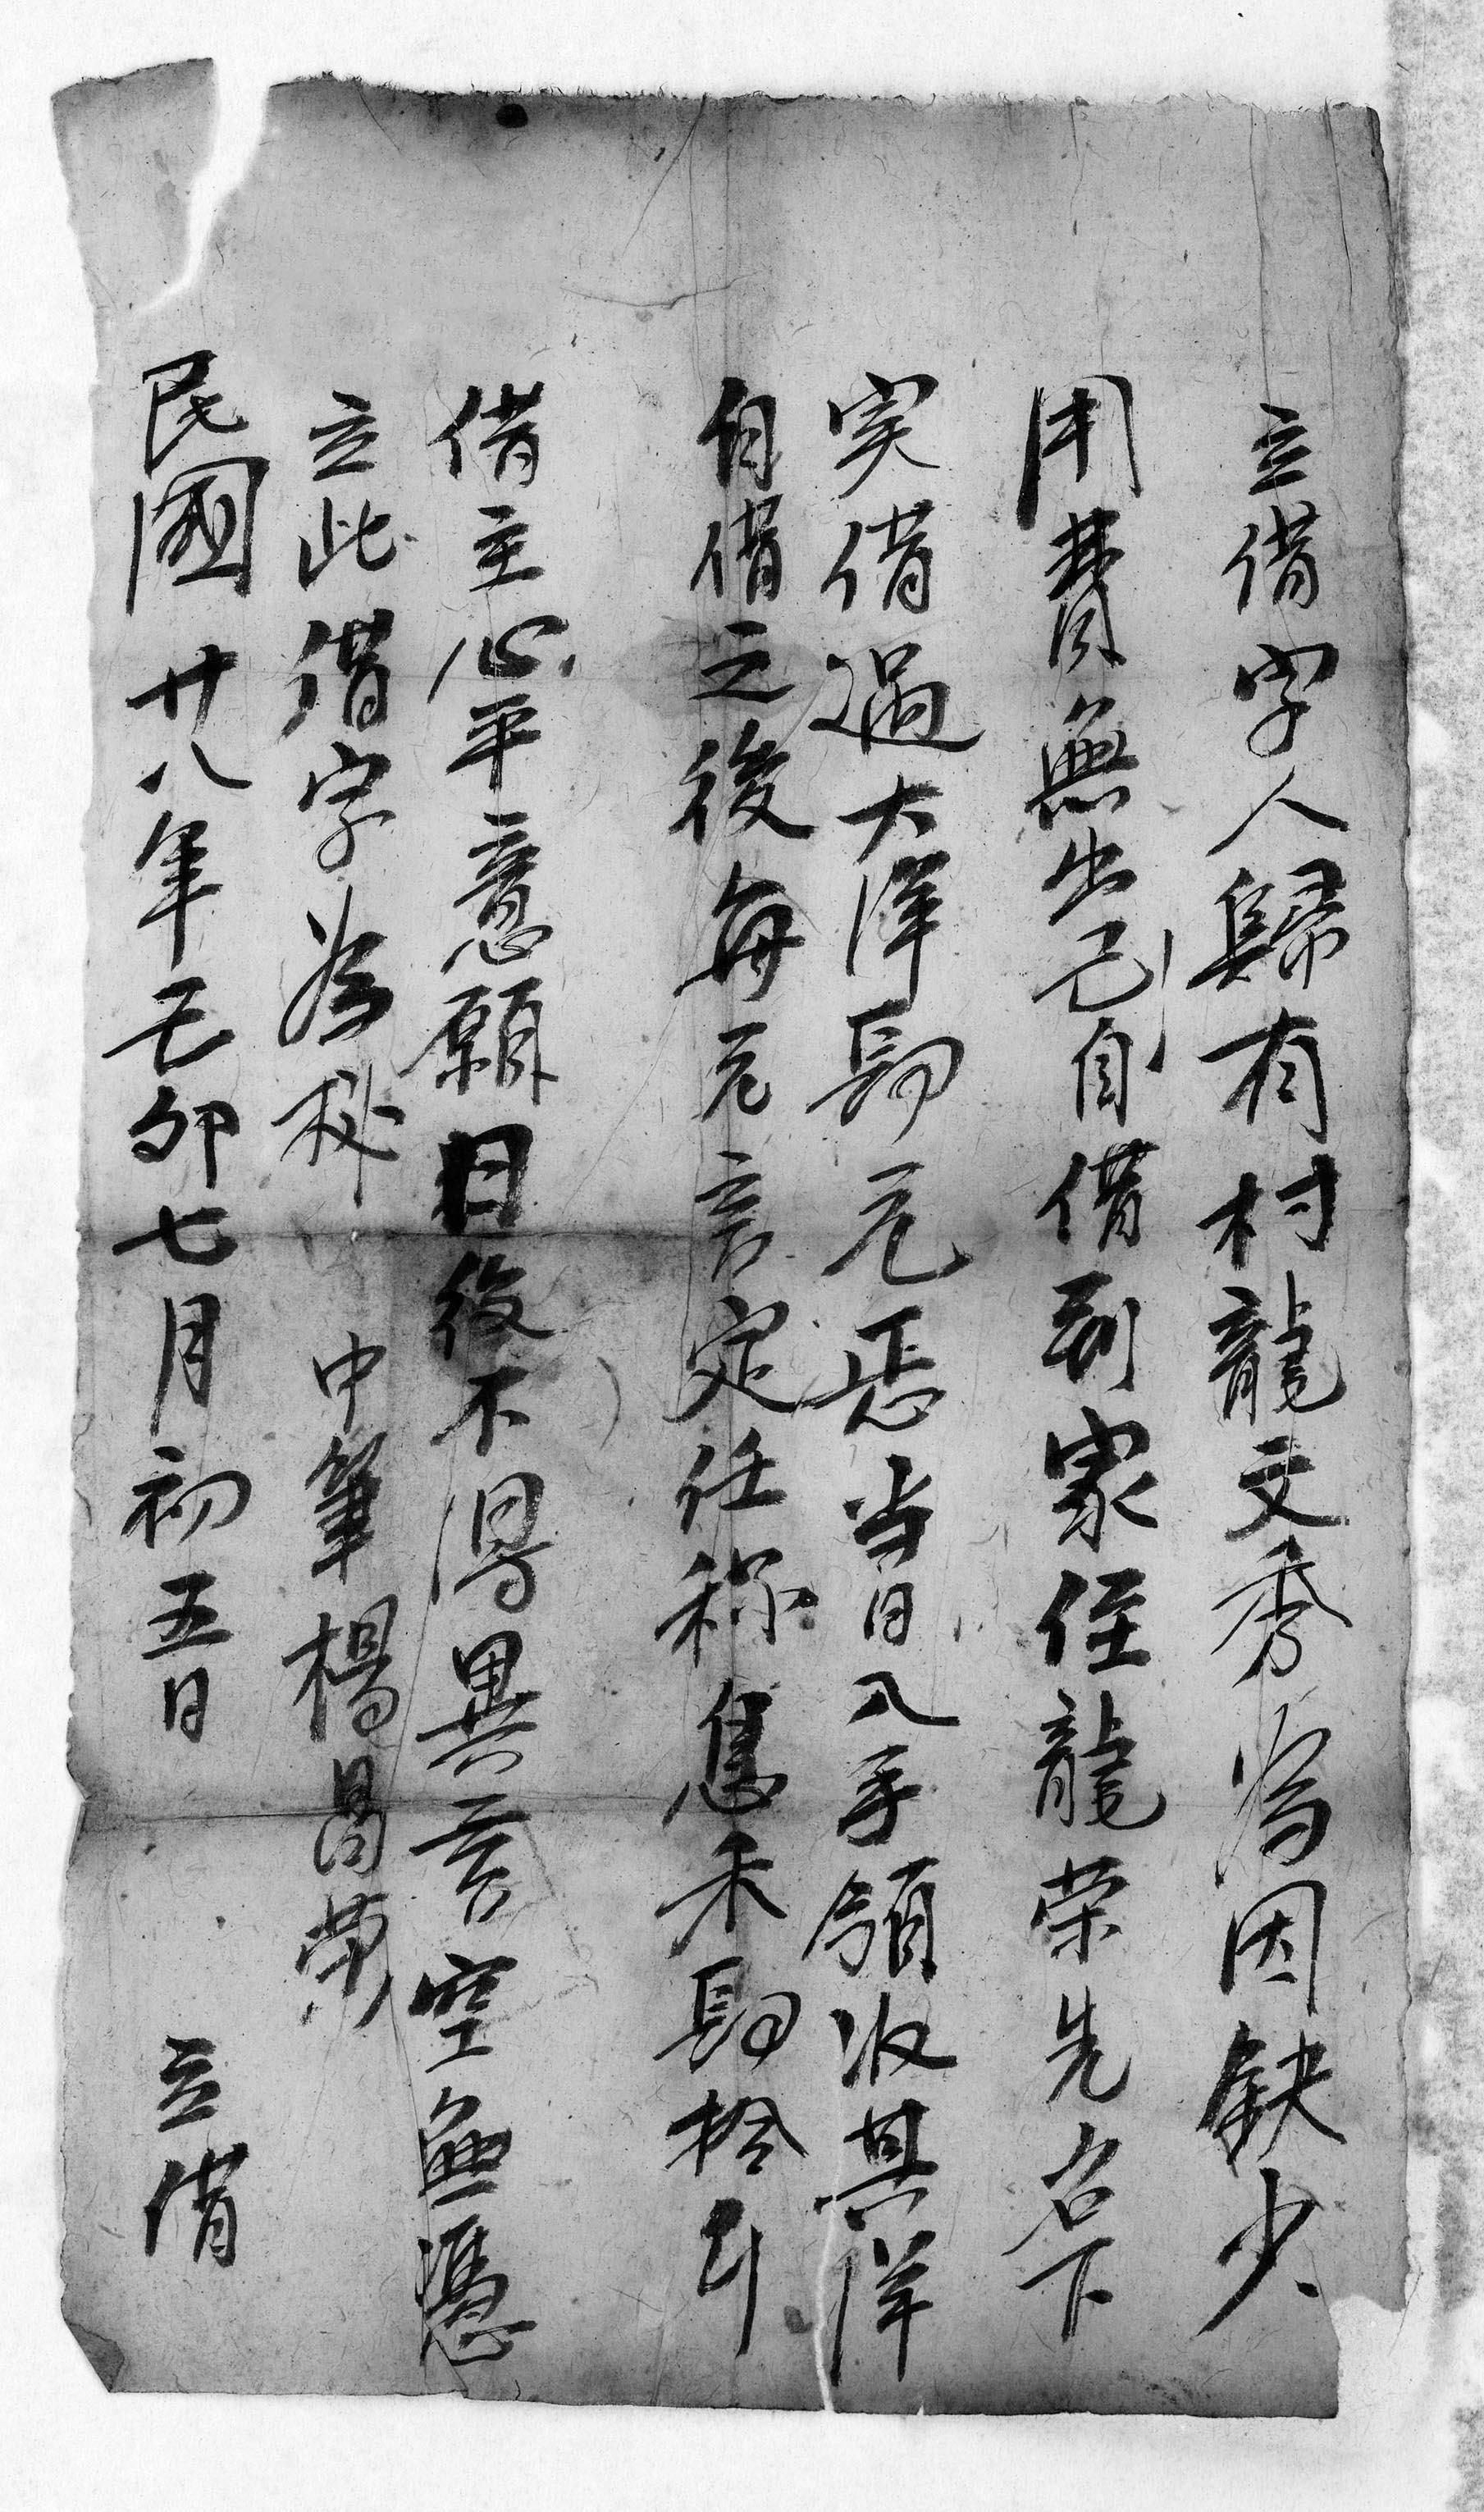 立借字人歸有村龍文秀為因缺少
用費無出己自借到家侄龍荣先名下
实借過大洋肆元惩当日入手領收其洋
自借之後每元言定任称息禾肆拾斤
借主心平意願日後不得異言空無憑
立此借字為秘　中筆楊昌荣
民國廿八年己卯七月初五日　立借